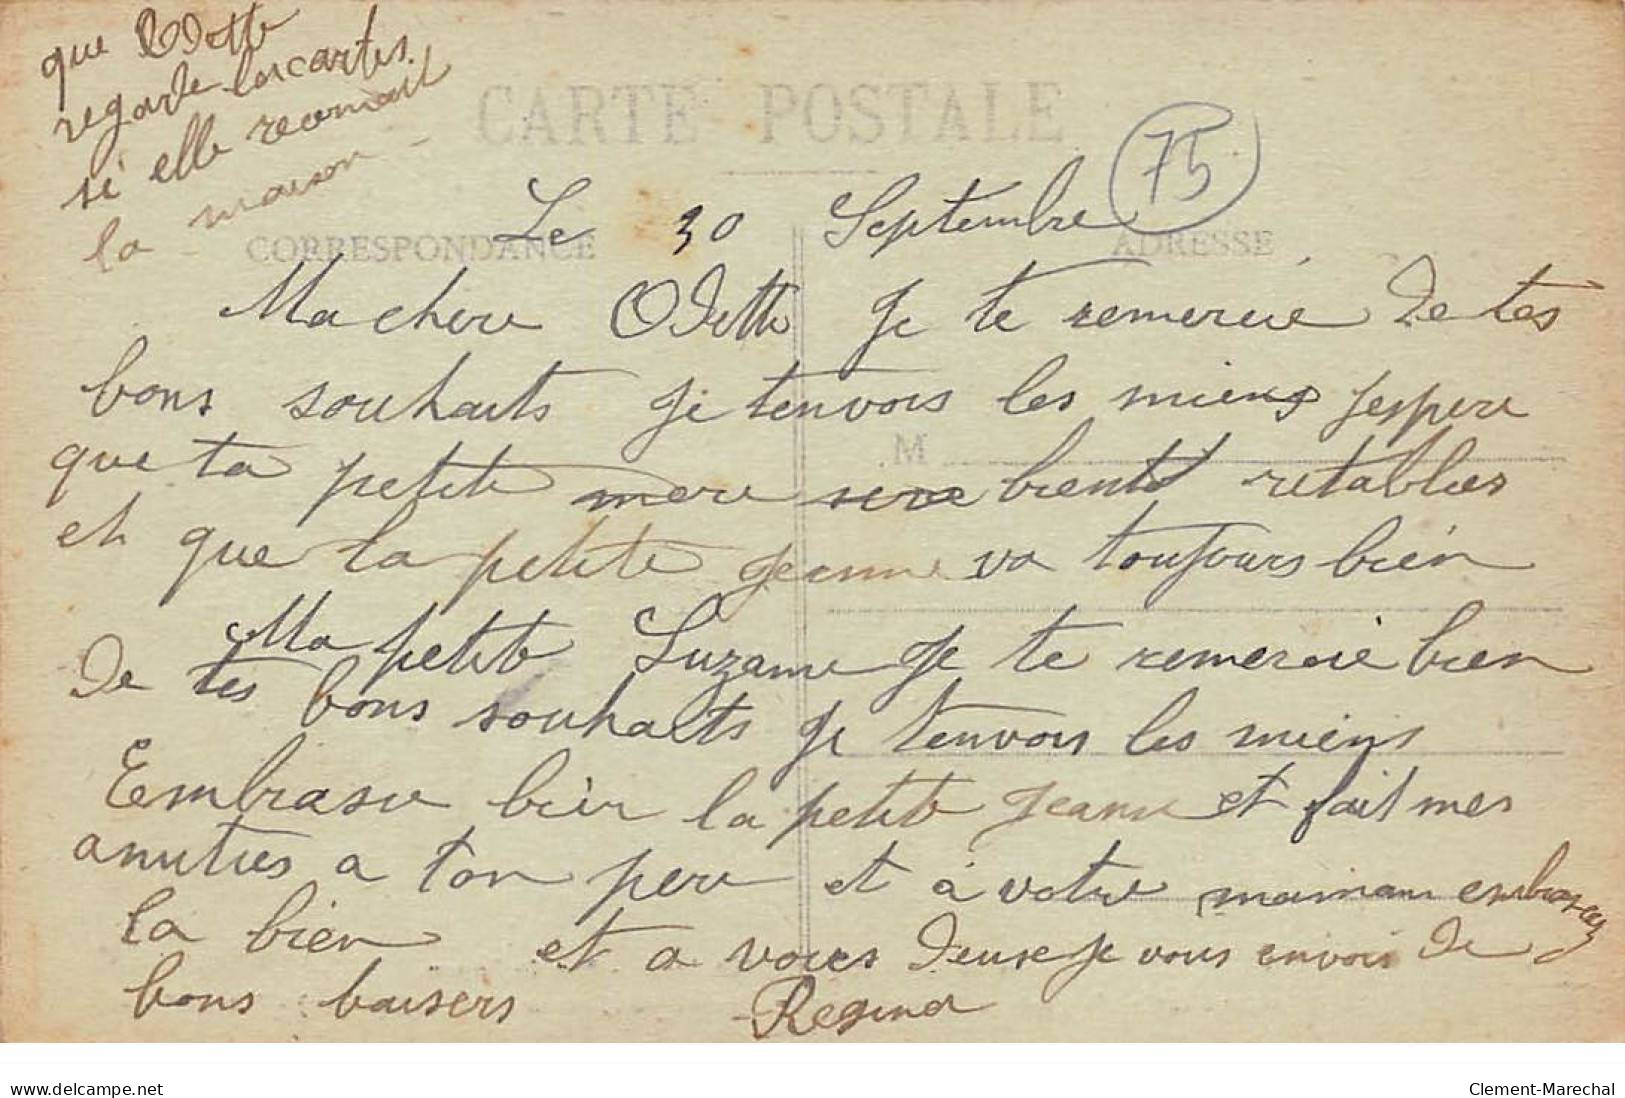 que Odette
regarde les cartes.
si elle reconnait
la maison -
CARTE POSTALE
75
Le 30 Septembre
CORRESPONDANCE
ADRESSE
Ma chere Odette Je te remercie de tes
bons souhaits Je tenvois les miens Jespere
M
que ta petite mere sera bientot retablies
et que la petite Jeanne va toujours bien
Ma petite Suzanne Je te remercie bien
de tes bons souhaits Je tenvois les miens
Embrasse bien la petite Jeanne et fait mes
amities a ton pere et à votre maman embrassez
la bien et a vous deuse Je vous envois de
bons baisers Regina
www.delcampe.net
Clement-Marechal